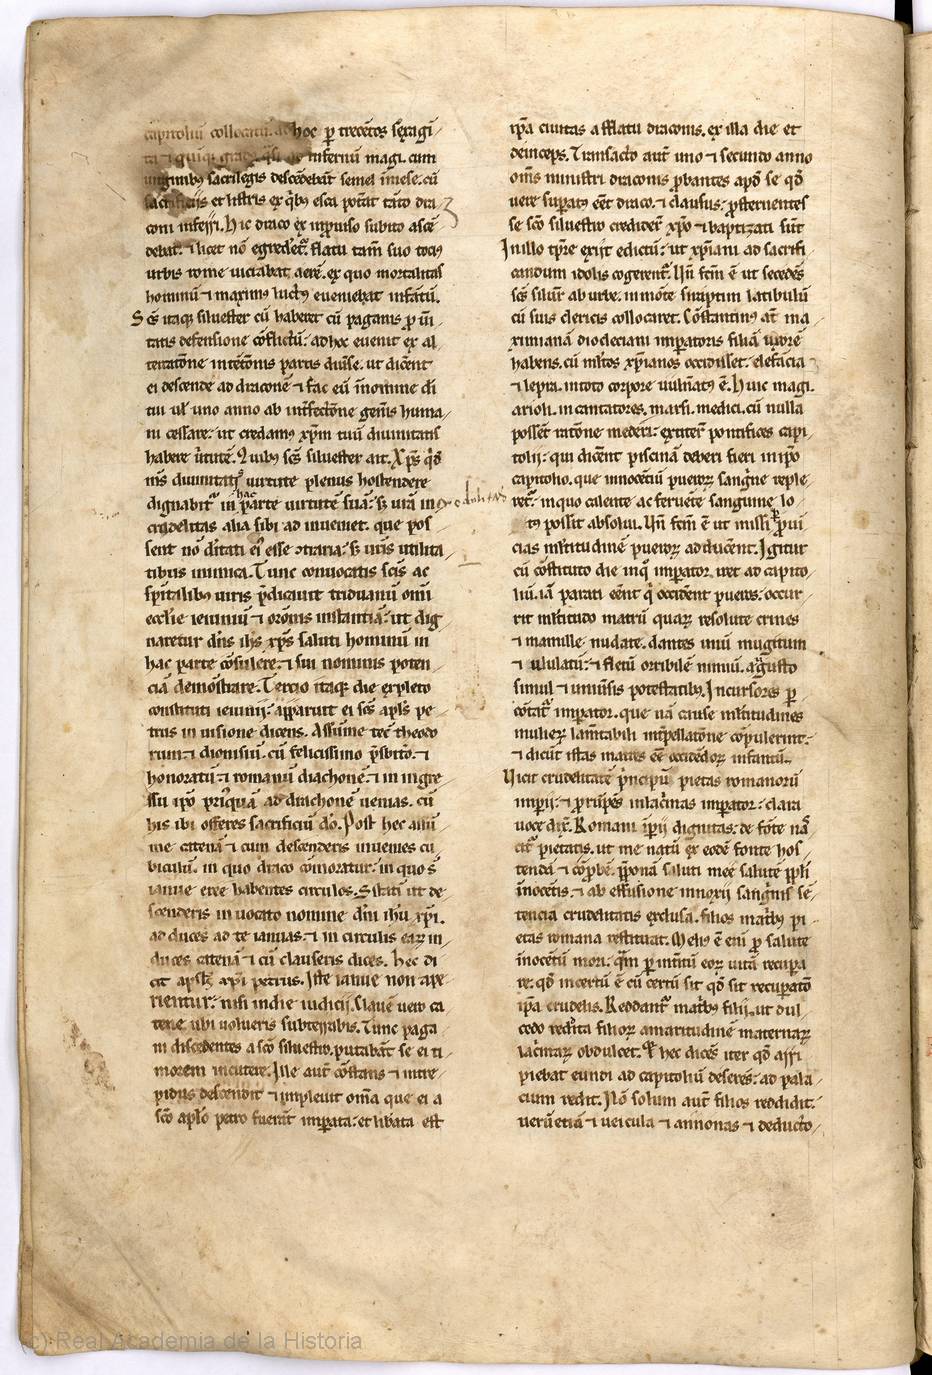 capitoliũ collocatũ. ad hoc ꝑ trecẽtos sexagi
ta ⁊ quiq; gradꝰ infernũ magi. cum
uirginibꝫ sacrilegis descẽdebãt semel ĩmẽse. cũ
sacrificiis et lustris ex qͥbꝫ esca potãt tãto dra
coni inferri. hic draco ex ĩprouiso subito ascẽ
debat. ⁊ licet nõ egrederet᷑. flatu tam̃ suo tociꝰ
urbis rome uiciabat aerẽ. ex quo mortalitas
hominũ ⁊ maximꝰ luctꝰ eueniebat infãtũ.
Scs̃ itaqꝫ siluester cũ haberet cũ paganis ꝓ ũi
tatis defensione cõflictũ: ad hoc euenit ex al
tercatõne intẽtõnis partis diuise. ut dicent
ei descende ad draconẽ ⁊ fac eũ ĩnomine dĩ
tui uĺ uno anno ab int̃fectõne gen̑is huma
ni cessare: ut credamꝰ xp̃m tuũ diuinitatis
habere uĩtutẽ. Quibꝫ scs̃ siluester ait. Xp̃s qͥdẽ
nr̃s diuinitatꝭ uirtute plenus hostendere
dignabit᷑ in hac parte uirtutẽ suã: sꝫ ur̃ã in credulitas
crudelitas alia sibi ad inueniet. que pos
sent nõ dĩtati eiꝰ esse ↄtraria: sꝫ ur̃is utilita
tibus inimica. Tunc conuocatis scĩs ac
sp̃italibꝫ uiris p̃dicauit triduanũ om̃i
eccĺie ieiuniũ ⁊ or̃onis instantiã: ut dig
naretur dñs ihs̃ xp̃s saluti hominũ in
hac parte cõsulere: ⁊ sui nominis poten
ciã demõstrare. Tercio itaqꝫ die expleto
constituti ieiunii: apparuit ei scs̃ apĺs pe
trus in uisione dicens. Assume tec̃ theodo
rum ⁊ dionisiũ. cũ felicissimo p̃sbit̃o. ⁊
honoratũ ⁊ romanũ diachonẽ. ⁊ in ingre
ssu ip̃o priꝰquã ad drachonẽ uenias. cũ
his ibi offeres sacrificiũ dõ. Post hec assũ
me catenã ⁊ cum descenderis inuenies cu
biculũ. in quo draco cõmoratur: in quo s̃
ianue eree habentes circulos. Statĩ ut de
scenderis in uocato nomine dñi ihũ xp̃i.
ad duces ad te ianuas: ⁊ in circulis eaꝝ in
duces catenã ⁊ cũ clauseris dices. hec di
cit apĺs xp̃i petrus. Iste ianue non ape
rientur: nisi in die iudicii. Clauẽ uero ca
tene ubi uolueris subterrabis. Tunc paga
ni discedentes a sc̃o siluestro. putabãt se ei ti
morem incutere. Ille aut̃ cõstans ⁊ intre
pidus descendit ⁊ impleuit om̃a que ei a
sc̃o apĺo petro fuerãt imꝑata: et libata est
ip̃a ciuitas a fflatu draconis. ex illa die et
deinceps. Transacto aut̃ uno ⁊ secundo anno
om̃s ministri draconis ꝓbantes apd̃ se qd̃
uere suꝑatꝰ eẽt draco. ⁊ clausus: ꝓsternentes
se sc̃o siluestro crediderẽ xp̃o ⁊ baptizati sũt
In illo tp̃re exiit edictũ: ut xp̃iani ad sacrifi
candum idolis cogerent᷑. Uñ fcm̃ ẽ ut secedẽs
scs̃ silũr ab urbe. in mõte siraptim latibulũ
cũ suis clericis collocaret. Cõstantinꝰ at̃ ma
ximianã diocleciani imꝑatoris filiã uxorẽ
habens. cũ mĺtos xp̃ianos occidisset: elefãcia
⁊ lepra. in toto corpore uulnãtꝰ ẽ. Huic magi.
arioli. in cantatores. marsi. medici. cũ nulla
possẽt ratõne mederi: extiter̃ pontifices capi
tolii: qui dicẽnt piscinã deberi fieri in ip̃o
capitolio. que innocẽtiũ pueroꝝ sangĩe reple
ret᷑. in quo calente ac feruẽte sanguine lo
tꝰ possit absolui. Uñ fcm̃ ẽ ut missi ꝑ ꝓui
cias mĺtitudinẽ pueroꝝ adducẽnt. Igitur
cũ cõstituto die inqͦ imperator iret ad capito
liũ. iã parati eẽnt qͥ occidẽnt pueros: occur
rit mĺtitudo matrũ quaꝝ resolute crines
⁊ mamille nudate. dantes unũ mugitum
⁊ ululatũ: ⁊ fletũ orribilẽ nimiũ. augusto
simul ⁊ uniũsis potestatibꝫ. Incursores ꝑ
cõtat᷑ imꝑator. que nã cause mĺtitudines
mulieꝝ lam̃tabili int̃pellatõne cõpulerint:
⁊ dicũt istas matres eẽ occidẽdoꝝ infantũ.
Uicit crudelitatẽ p̃ncipũ pietas romanorũ
imperii: ⁊ ꝓrũpẽs in lac̃mas imꝑator: clara
uoce dix̃. Romani ip̃ii dignitas: de fõte nã
cit᷑ pietatis. ut me natũ ex eodẽ fonte hos
tendã ⁊ cõꝓbẽ. p̃ponã saluti mee salutẽ ppĺi
ĩnocẽtis: ⁊ ab effusione innoxii sangĩnis sẽ
tencia crudelitatis exclusa. filios matĩbꝫ pi
etas romana restituat. Meliꝰ ẽ eni ꝓ salute
ĩnocẽtũ mori: qm̃ ꝑ int̃itũ eoꝝ uitã recupa
re: qd̃ incertũ ẽ cũ certũ sit qd̃ sit recuperatõ
ip̃a crudelis. Reddant᷑ matĩbꝫ filii. ut dul
cedo reddita filioꝝ amaritudinẽ maternaꝝ
lac̃maꝝ obdulcet. Et hec dicẽs iter qd̃ arri
piebat eundi ad capitoliũ deserẽs: ad pala
cium redit. Nõ solum aut̃ filios reddidit:
uerũ etiã ⁊ ueicula ⁊ annonas ⁊ deducto
(c) Real Academia de la Historia